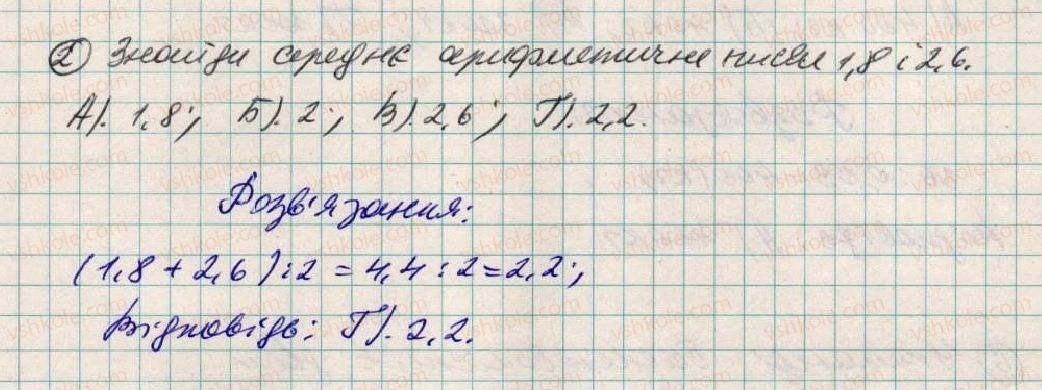 2 Знайди середнє арифметичне чисел 1,8 і 2,6.
А). 1,8; Б). 2; В). 2,6; Г). 2,2.
Розв'язання:
(1,8 + 2,6) : 2 = 4,4 : 2 = 2,2;
Відповідь: Г). 2,2.